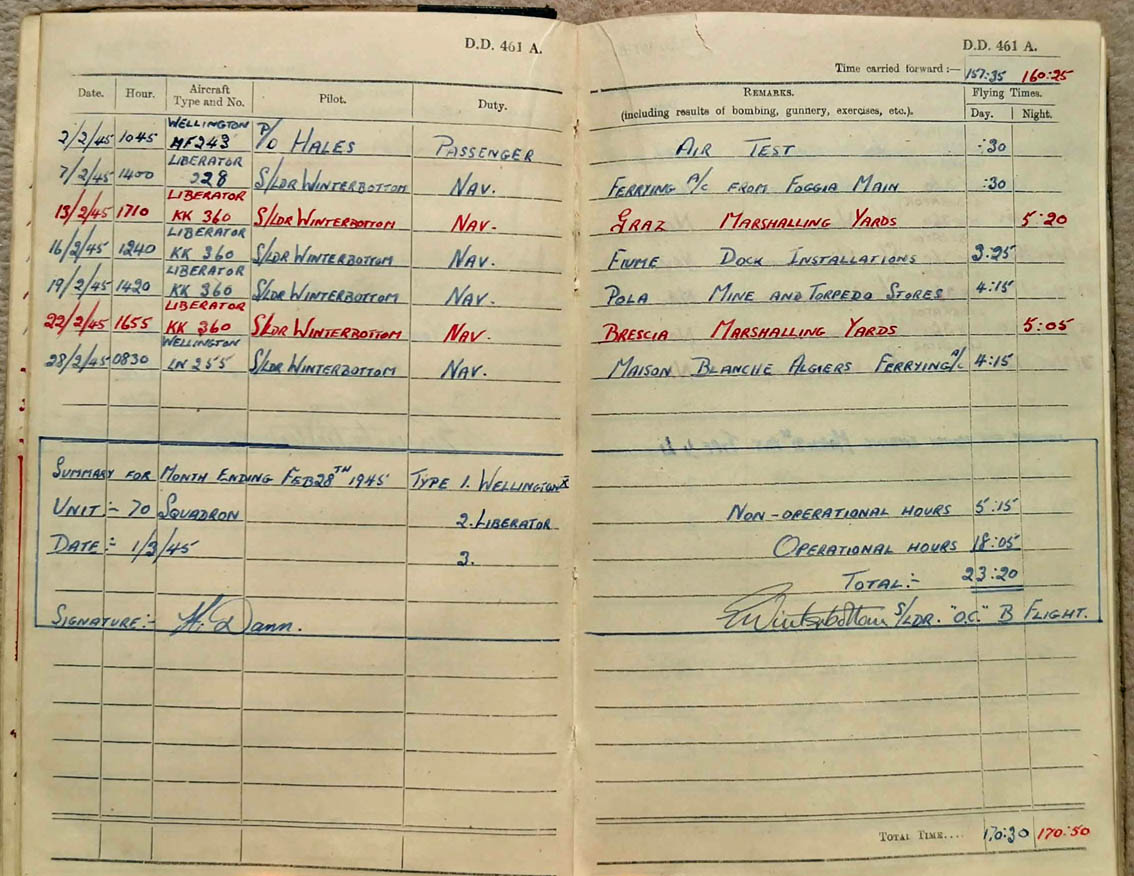 D.D. 461 A.
Date. Hour. Aircraft Type and No. Pilot. Duty.
2/2/45 1045 WELLINGTON MF243 P/O HALES PASSENGER
7/2/45 1400 LIBERATOR 228 S/LDR WINTERBOTTOM NAV.
13/2/45 1710 LIBERATOR KK 360 S/LDR WINTERBOTTOM NAV.
16/2/45 1240 LIBERATOR KK 360 S/LDR WINTERBOTTOM NAV.
19/2/45 1420 LIBERATOR KK 360 S/LDR WINTERBOTTOM NAV.
22/2/45 1655 LIBERATOR KK 360 S/LDR WINTERBOTTOM NAV.
28/2/45 0830 WELLINGTON LN 255 S/LDR WINTERBOTTOM NAV.
SUMMARY FOR MONTH ENDING FEB 28TH 1945 TYPE 1. WELLINGTON X
UNIT :- 70 SQUADRON 2. LIBERATOR
DATE :- 1/3/45 3.
SIGNATURE:- H. Dann.
D.D. 461 A.
Time carried forward :— 157:35 160:25
REMARKS. Flying Times.
(including results of bombing, gunnery, exercises, etc.). Day. Night.
AIR TEST :30
FERRYING A/C FROM FOGGIA MAIN :30
GRAZ MARSHALLING YARDS 5:20
FIUME DOCK INSTALLATIONS 3:25
POLA MINE AND TORPEDO STORES 4:15
BRESCIA MARSHALLING YARDS 5:05
MAISON BLANCHE ALGIERS FERRYING A/C 4:15
NON-OPERATIONAL HOURS 5:15
OPERATIONAL HOURS 18:05
TOTAL:- 23:20
EWinterbottom S/LDR. "O.C." B FLIGHT.
TOTAL TIME.... 170:30 170:50